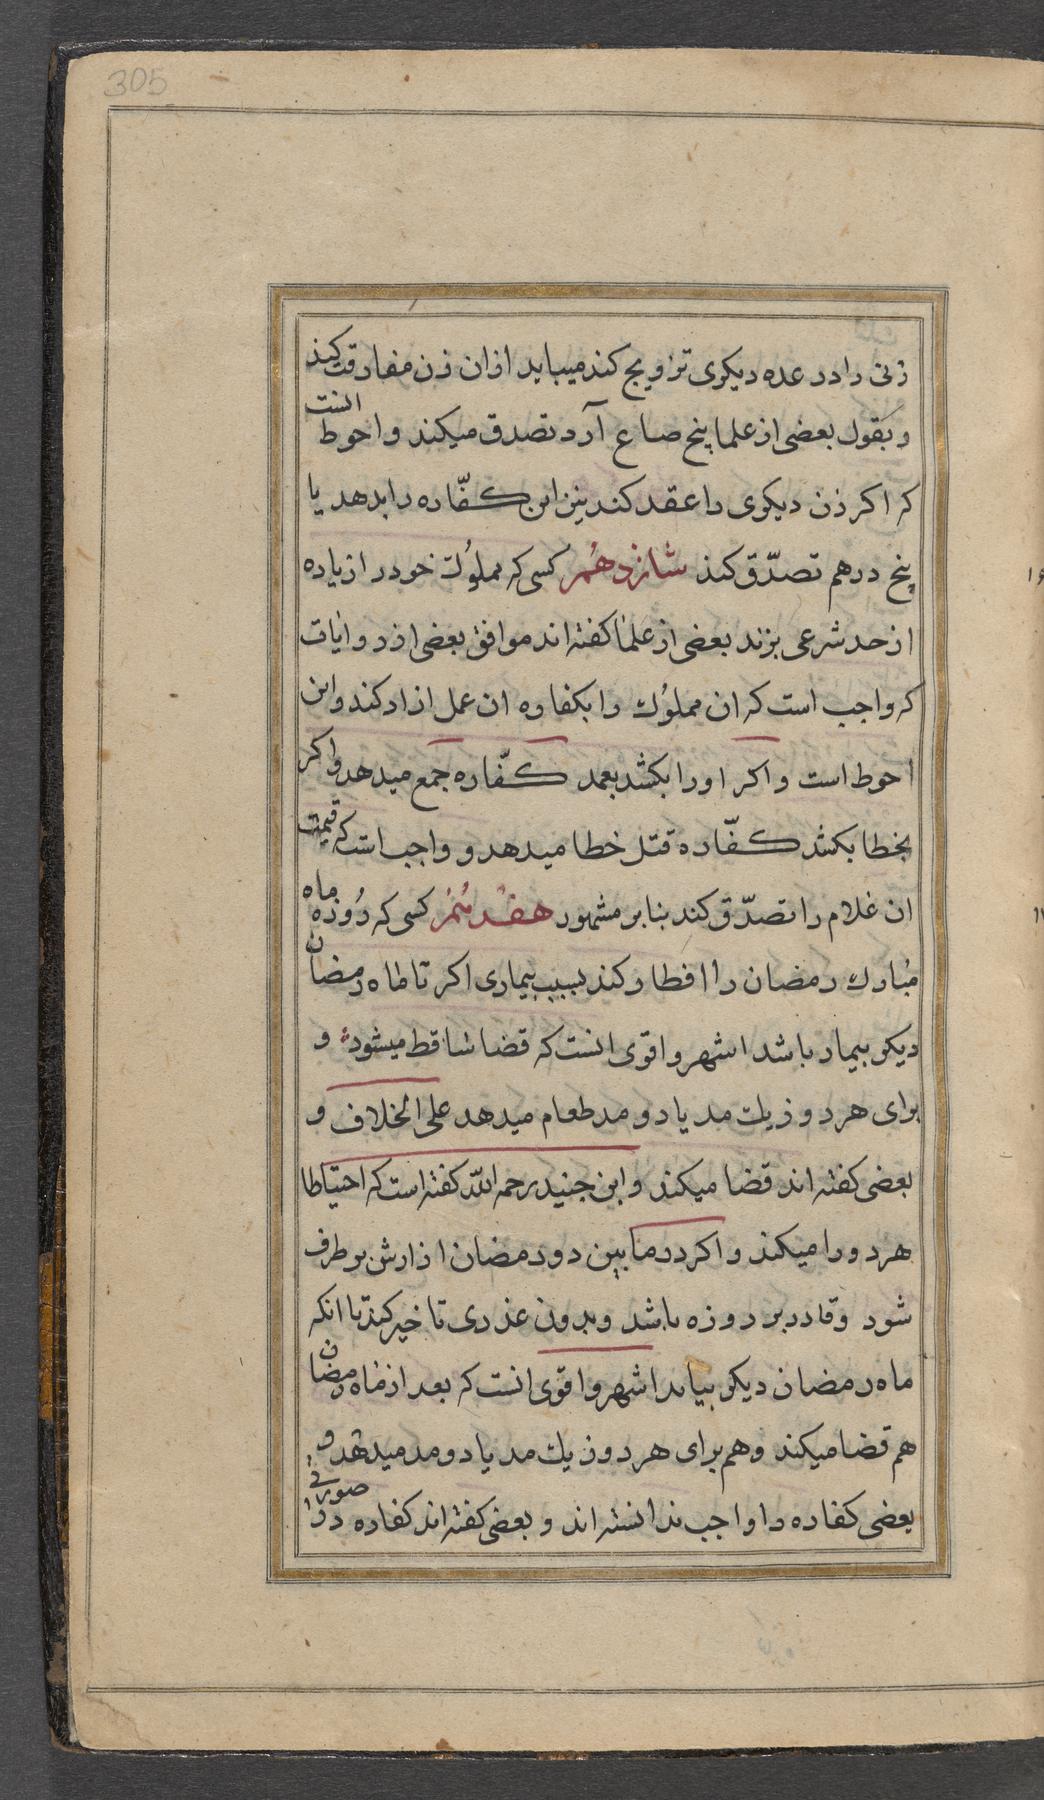 305
زنی را در عده دیکری تزویج کند میباید ازان زن مفارقت کند
و بقول بعضی از علما پنج صاع آرد تصدق میکند و احوط انست
که اکر زن دیکری را عقد کند نیز این کفّاره را بدهد یا
پنج درهم تصدّق کند شانزدهُم کسی که مملوُك خود را زیاده
از حد شرعی بزند بعضی از علما کفته اند موافق بعضی از روایات
که واجب است که ان مملوُك را بکفاره ان عمل ازاد کند و این
احوط است و اکر او را بکشد بعمد کفّاره جمع میدهد و اکر
بخطا بکشد کفّاره قتل خطا میدهد و واجب است که قیمت
ان غلام را تصدّق کند بنابر مشهور هفدهُم کسی که رُوزه ماه
مُبارك رمضان را افطار کند بسبب بیماری اکر تا ماه رمضان
دیکر بیمار باشد اشهر و اقوی انست که قضا ساقط میشود و
برای هر روز یك مد یا دو مد طعام میدهد علی الخلاف و
بعضی کفته اند قضا میکند و ابن جنید رحمه اللّه کفته است که احتیاطا
هر دو را میکند و اکر در مابین دو رمضان ازارش بر طرف
شود و قادر بر روزه باشد و بدون عذری تاخیر کند تا انکه
ماه رمضان دیکر بیاید اشهر و اقوی انست که بعد از ماه رمضان
هم قضا میکند و هم برای هر روز یك مد یا دو مد میدهد و
بعضی کفاره را واجب ندانسته اند و بعضی کفته اند کفاره در صورتی